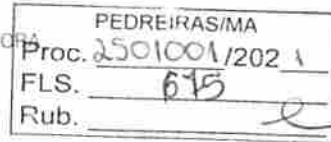 PEDREIRAS/MA
Proc. 2501001/2021
FLS. 675
Rub.